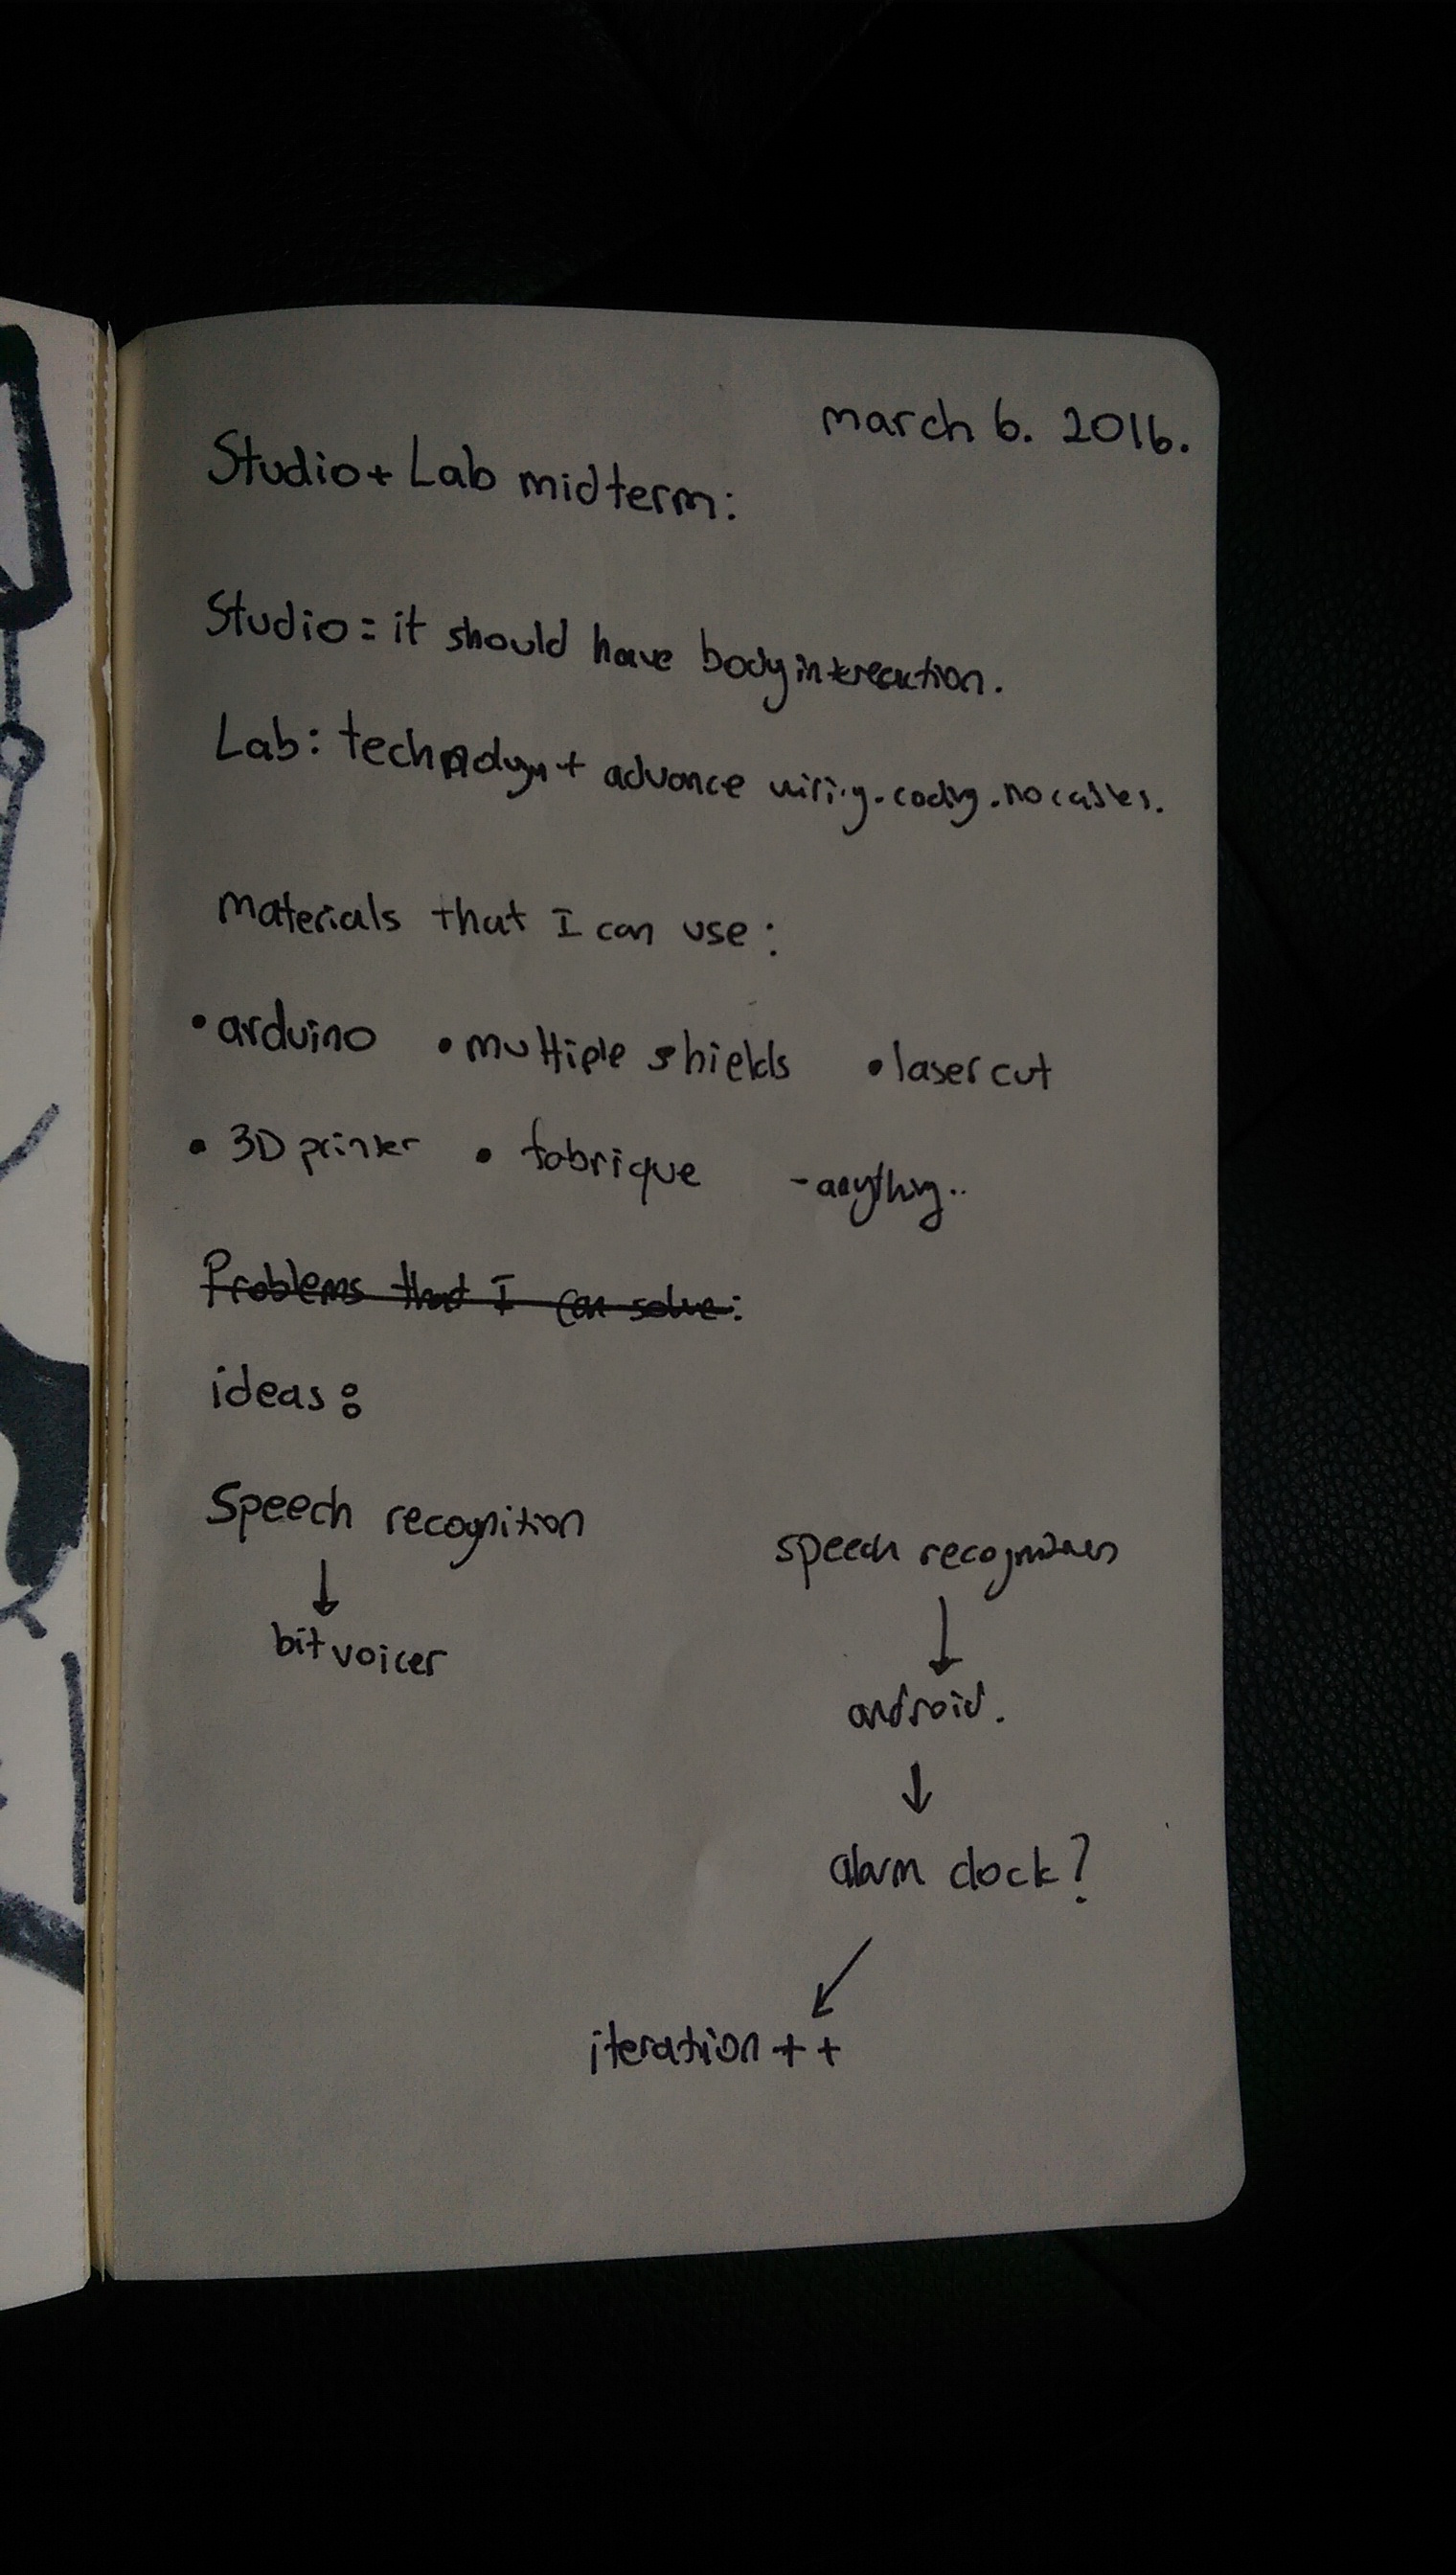 march 6. 2016.
Studio + Lab midterm:
Studio = it should have body interaction.
Lab: + advance wiring. coding. no cables.
materials that I can use:
• arduino • multiple shields • laser cut
• 3D printer • fabrique - anything..
Problems that I can solve:
ideas:
Speech recognition
speech recognition
↓
bit voicer
↓
android.
↓
alarm clock?
↙
iteration ++